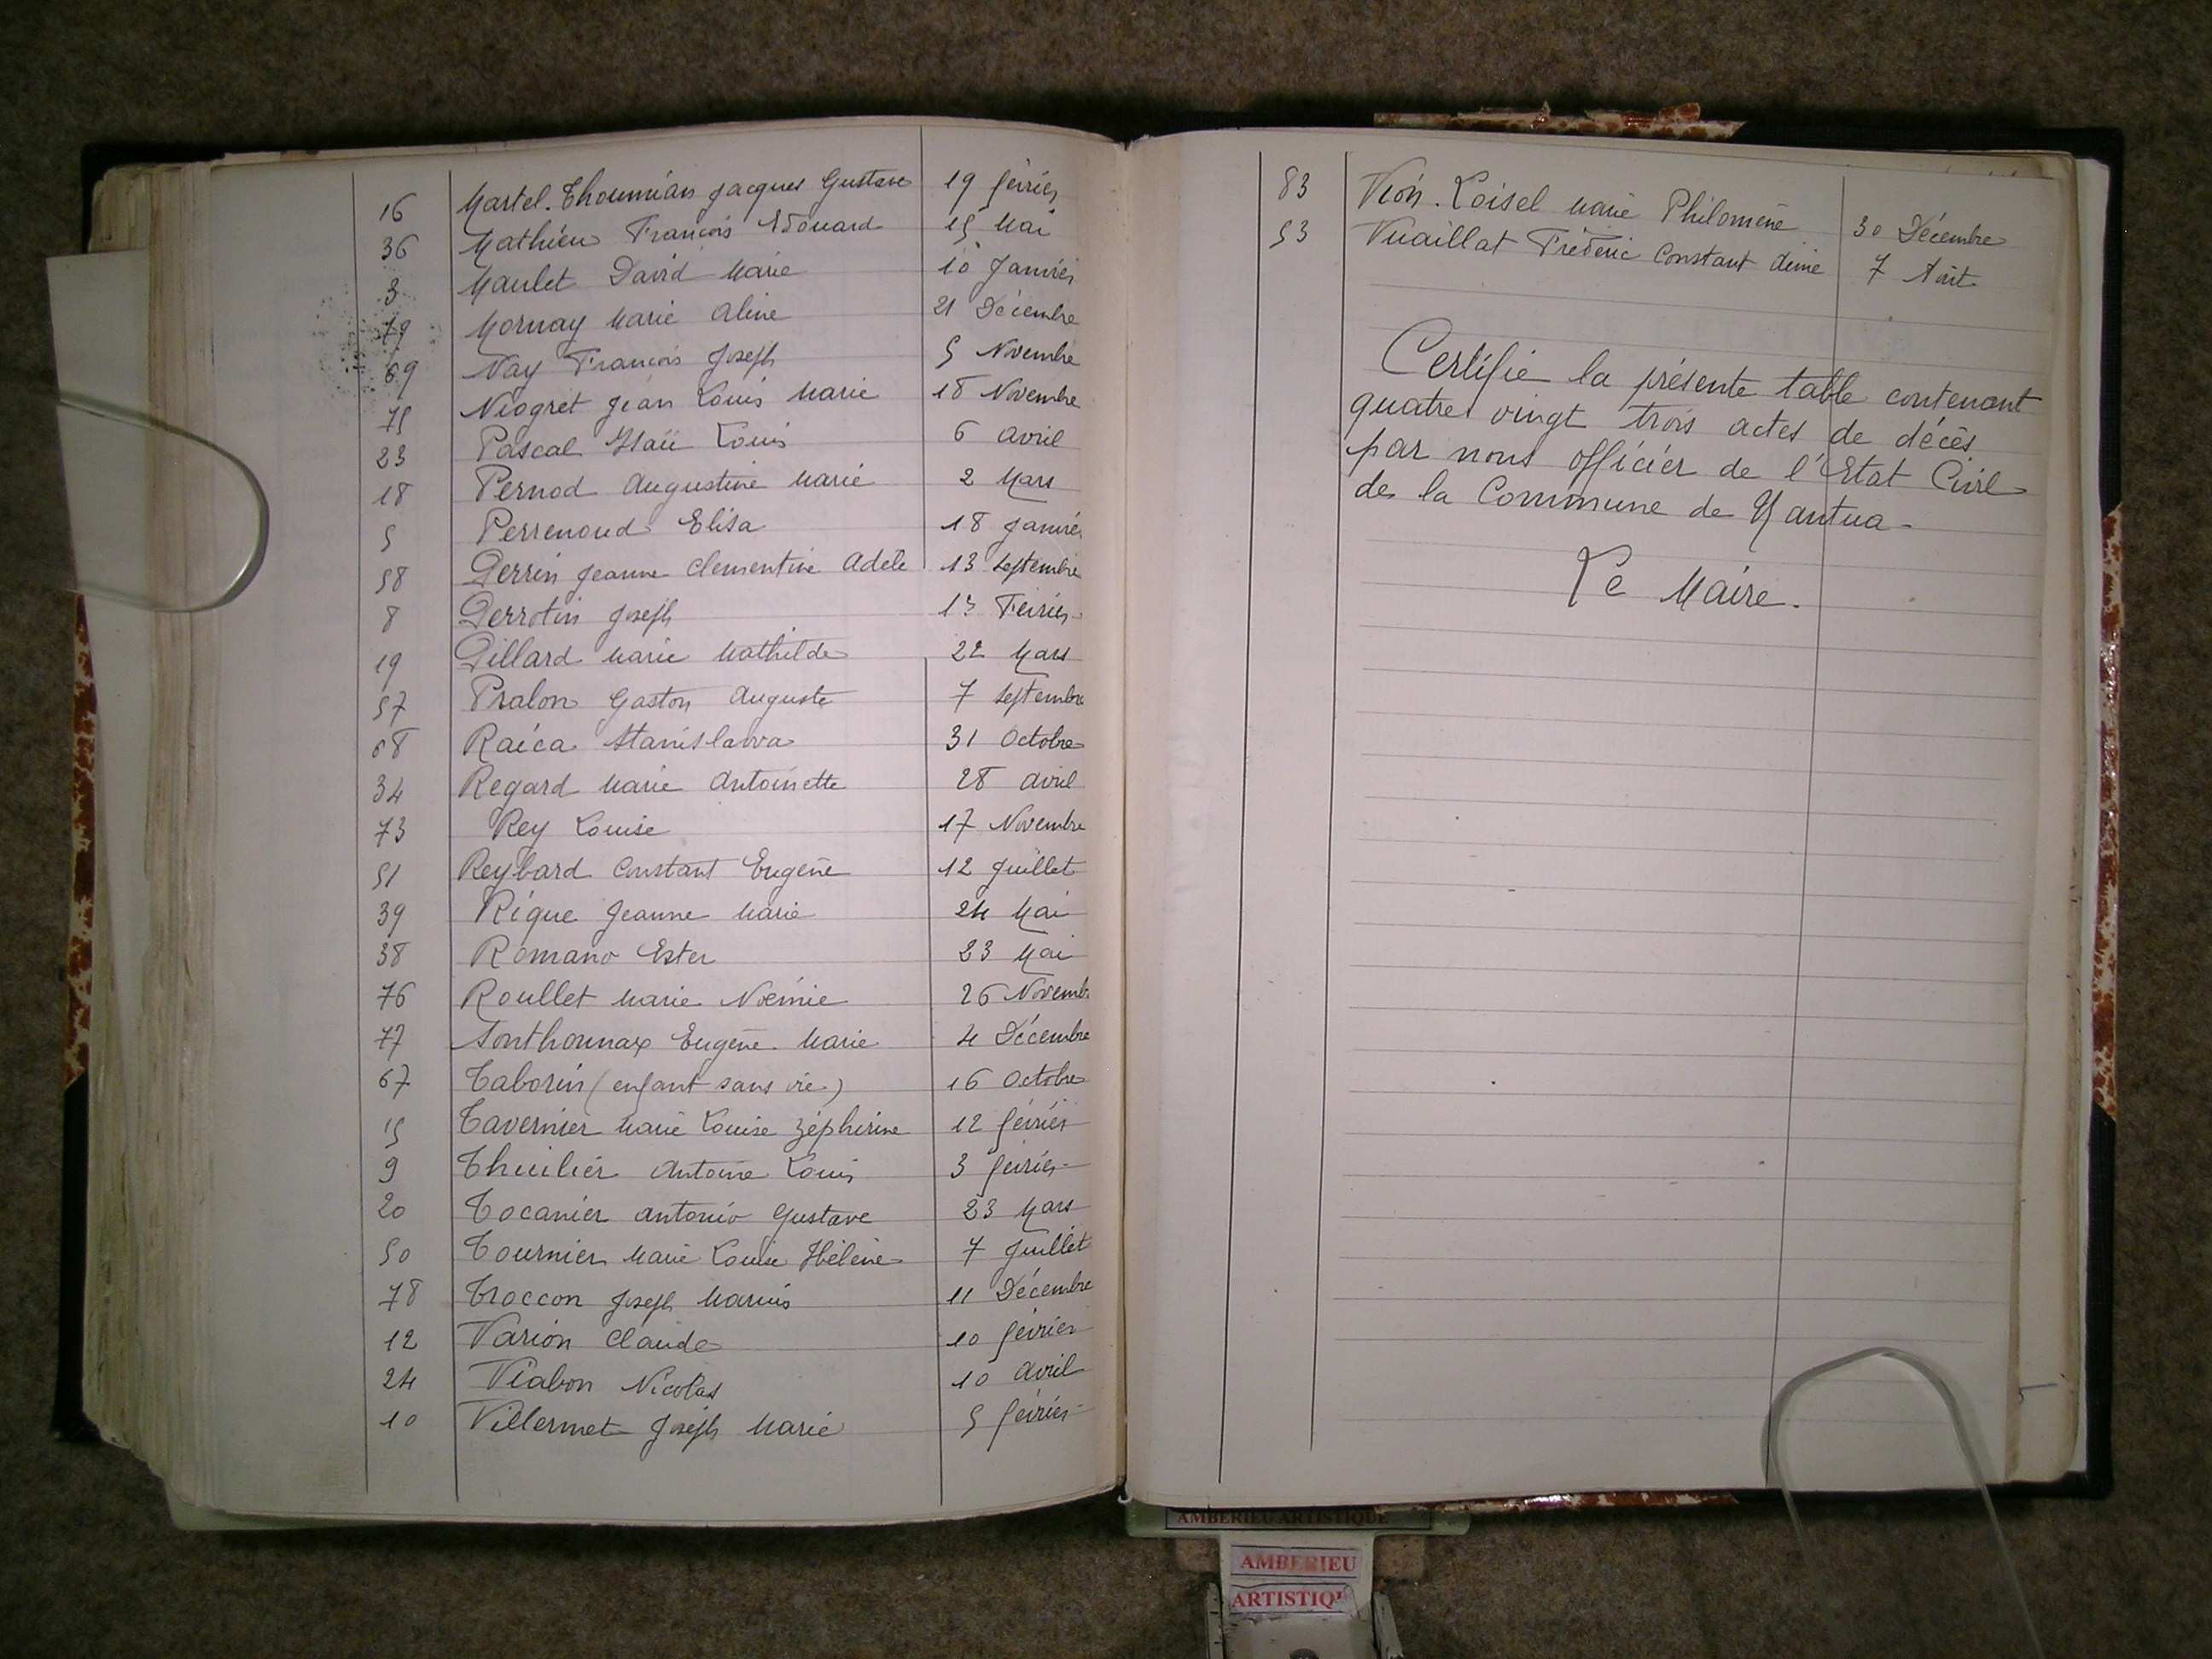 16 Martel-Thoumian Jacques Gustave 19 février
36 Mathieu François Edouard 15 Mai
3 Maulet David Marie 10 Janvier
79 Mornay Marie Aline 21 Décembre
69 Nay François Joseph 5 Novembre
75 Niogret Jean Louis Marie 18 Novembre
23 Pascal Louis 6 avril
18 Pernod Augustine Marie 2 Mars
5 Perrenoud Elisa 18 Janvier
58 Perrin Jeanne Clementine Adèle 13 Septembre
8 Perrotin Joseph Février
19 Pillard Marie Mathilde 22 Mars
57 Pralon Gaston Auguste 7 Septembre
68 Raica Stanislawa 31 Octobre
34 Regard Marie Antoinette 28 avril
73 Rey Louise 17 Novembre
51 Reybard Constant Eugène 12 Juillet
39 Rique Jeanne Marie 24 Mai
38 Romano Ester 23 Mai
76 Roullet Marie Noémie 26 Novemb
77 Sonthonnax Eugène Marie 4 Décembre
67 Taborin (enfant sans vie) 16 Octobre
15 Tavernier Marie Louise Zéphirine 12 février
9 Thuilier Antoine Louis 3 février
20 Tocanier Antonio Gustave 23 Mars
50 Tournier Marie Louise Hélène 7 Juillet
78 Troccon Joseph Marius 11 Décembre
12 Varion Claude 10 février
24 Viabon Nicolas 10 avril
10 Villermet Joseph Marie 5 février
83 Vion-Loisel Marie Philomène 30 Décembre
53 Vuaillat Fréderic Constant Aimé 7 Août
Certifié la présente table contenant
quatre vingt trois actes de décès
par nous officier de l'Etat Civil
de la Commune de Nantua-
Le Maire.
AMBERIEU ARTISTIQUE
AMBERIEU
ARTISTIQU